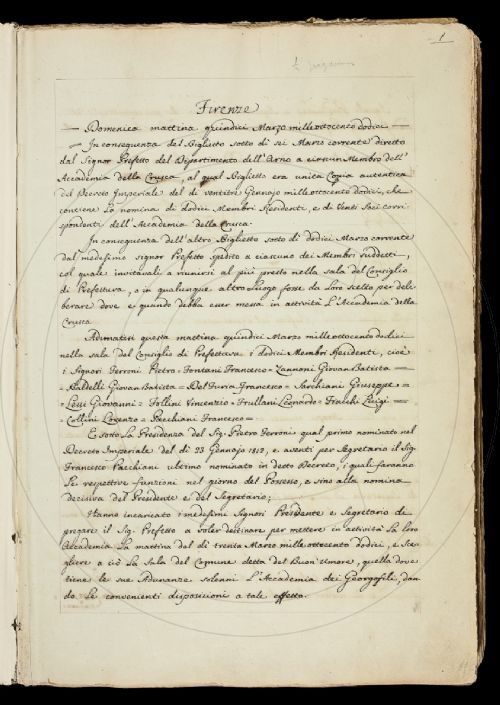 1
Firenze
— Domenica mattina quindici Marzo mille ottocento dodici —
— In consequenza del Biglietto sotto dì sei Marzo corrente diretto
dal Signor Prefetto del Dipartimento dell'Arno a ciascun Membro dell'
Accademia della Crusca, al qual Biglietto era unita Copia autentica
del Decreto Imperiale del dì ventitre Gennajo mille ottocento dodici, che
contiene la nomina di dodici Membri Residenti, e di Venti Soci corri-
spondenti dell'Accademia della Crusca.
In consequenza dell'altro Biglietto sotto dì dodici Marzo corrente
dal medesimo signor Prefetto spedito a ciascuno dei Membri suddetti,
col quale invitavali a riunirsi al più presto nella sala del Consiglio
di Prefettura, o in qualunque altro luogo fosse da loro scelto per deli-
berare dove e quando debba esser messa in attività L'Accademia della
Crusca
Adunatisi questa mattina quindici Marzo mille ottocento dodici
nella sala del Consiglio di Prefettura i dodici Membri Residenti, cioè
i Signori Ferroni Pietro = Fontani Francesco = Zannoni Giovan Batista =
= Baldelli Giovan Batista = Del Furia Francesco = Sarchiani Giuseppe =
= Lessi Giovanni = Follini Vincenzio = Frullani Leonardo = Fiacchi Luigi =
= Collini Lorenzo = Pacchiani Francesco =
E sotto la Presidenza del Sig. Pietro Ferroni qual primo nominato nel
Decreto Imperiale del dì 23 Gennajo 1812, e aventi per Segretario il Sig.
Francesco Pacchiani ultimo nominato in detto Decreto, i quali faranno
le respettive funzioni nel giorno del Possesso, e sino alla nomina
decisiva del Presidente e del Segretario;
Hanno incaricato i medesimi Signori Presidente e Segretario di
pregare il Sig. Prefetto a voler destinare per mettere in attività la loro
Accademia la mattina del dì trenta Marzo mille ottocento dodici, e sce-
gliere a ciò la Sala del Comune detta del Buon'Umore, quella dove
tiene le sue Adunanze solenni L'Accademia dei Georgofili, dan-
do le convenienti disposizioni a tale effetto.